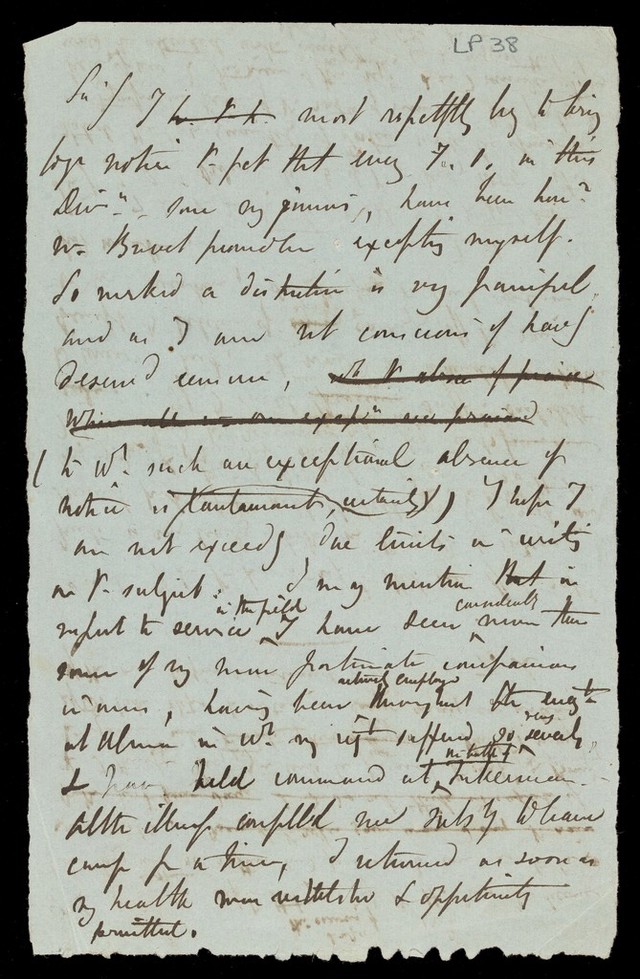 LP 38
Sir I most respectfly beg to bring
to yr notice & fact that every F. O. in this
Divn. - some my juniors, have been hond
wh Brevet promotion excepting myself.
So marked a distinction is very painful,
and as I am not conscious of havg
deserved censure,
( to wh such an exceptional absence of
notice is (tantamount, virtually), I hope I
am not exceedg due limits in writing
on & subject. I may mention that in
respect to service in the field I have seen considerably more than
some of my more fortunate companions
in arms, having been actively employed throughout
at Alma in wh my regt suffered so very severely,
& have held command at Inkerman.
Altho illness compelled me subsqy to leave
camp for a time, I returned as soon as
my health was & opportunity
permitted.